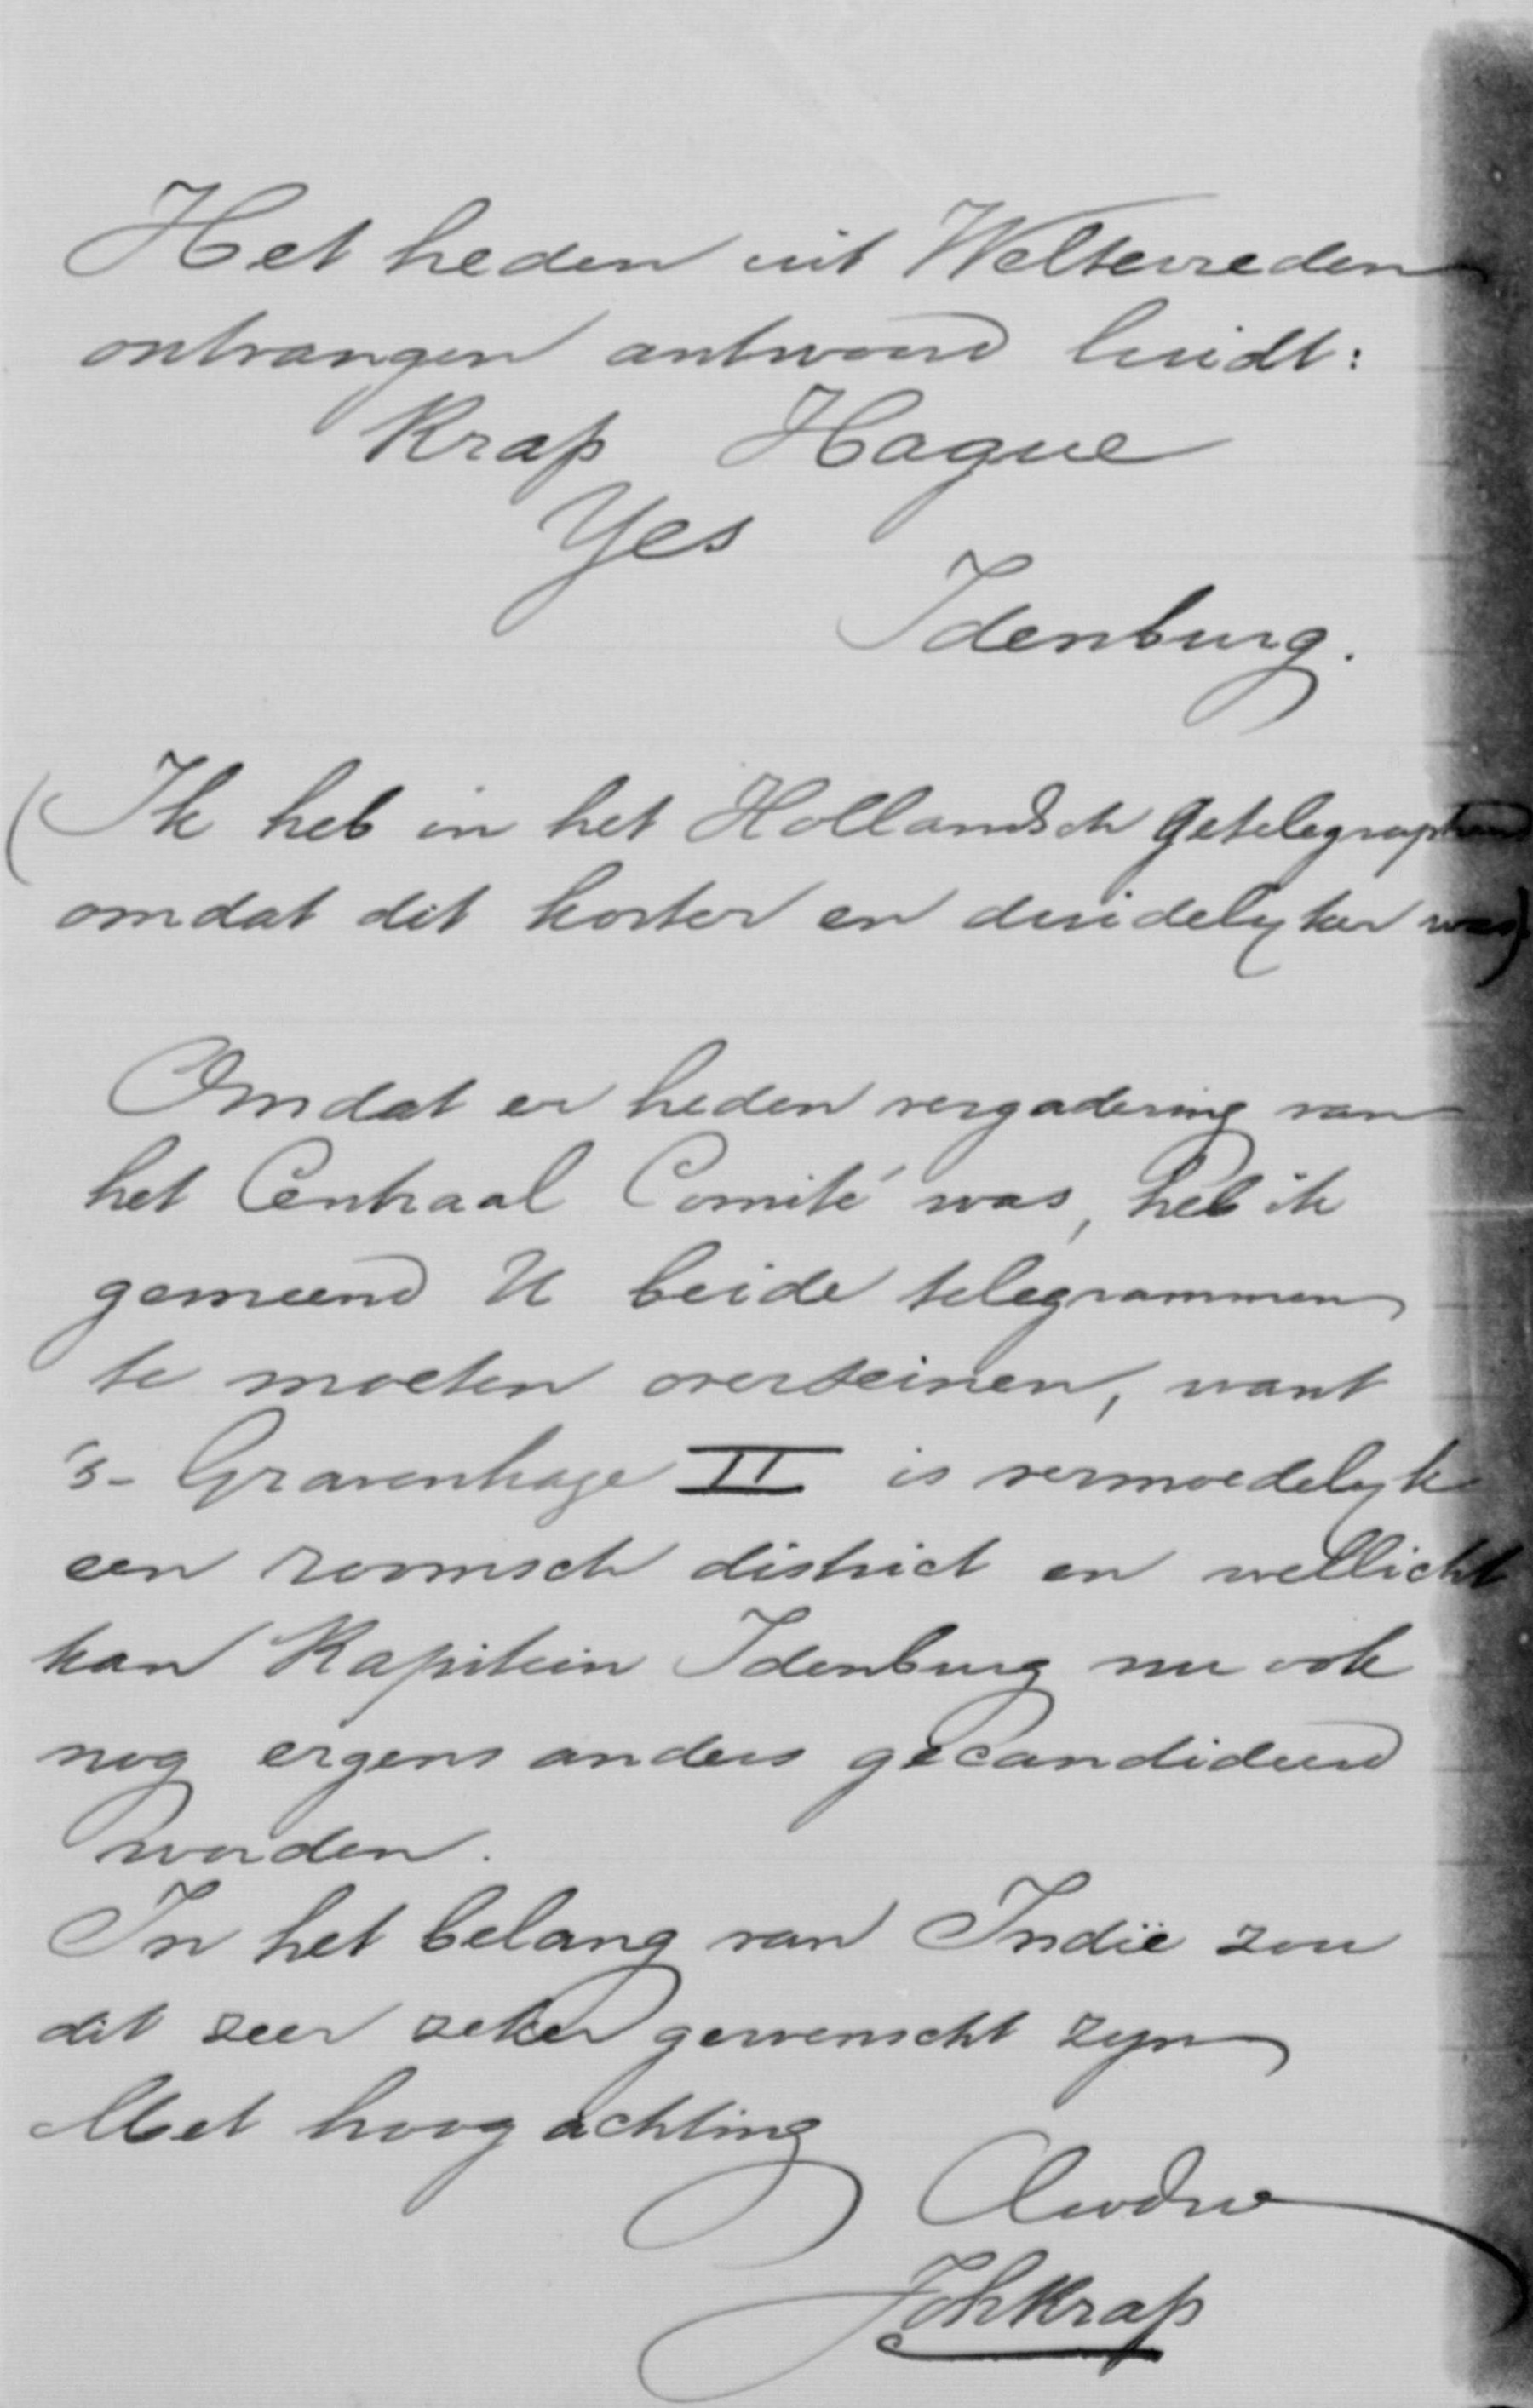 Het heden uit Weltevreden
ontvangen antwoord luidt:
Krap Hague
Yes
Idenburg.
(Ik heb in het Hollandsch getelegrapheerd
omdat dit korter en duidelyker was)
Omdat er heden vergadering van
het Centraal Comité was, heb ik
gemeend U beide telegrammen
te moeten overseinen, want
's-Gravenhage II is vermoedelyk
een roomsch district en wellicht
kan Kapitein Idenburg nu ook
nog ergens anders gecandideerd
worden.
In het belang van Indië zou
dit zeer zeker gewenscht zyn
Met hoogachting
Uwdw
JohKrap